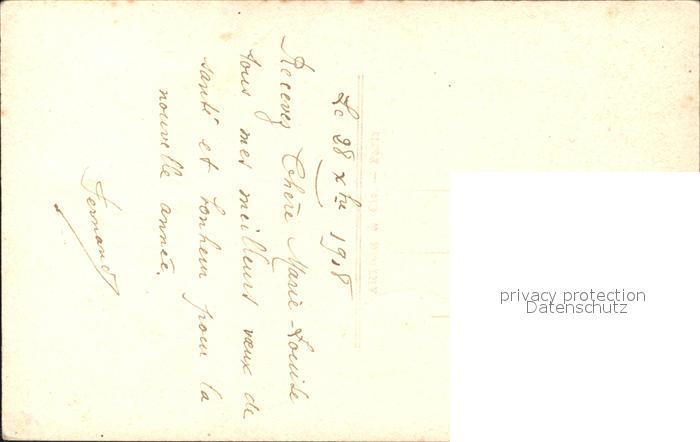 Le 28 Xbre 1918
Recevez Chère Marie-Louise
tous mes meilleurs vœux de
santé et bonheur pour la
nouvelle année.
Fernand
privacy protection
Datenschutz